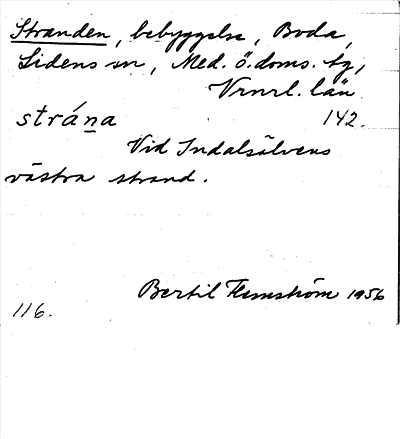 Stranden, bebyggelse, Boda,
Lidens sn, Med. ö. doms. tg,
Vrnrl. län
strána 142.
Vid Indalsälvens
västra strand.
Bertil Flemström 1956
116.